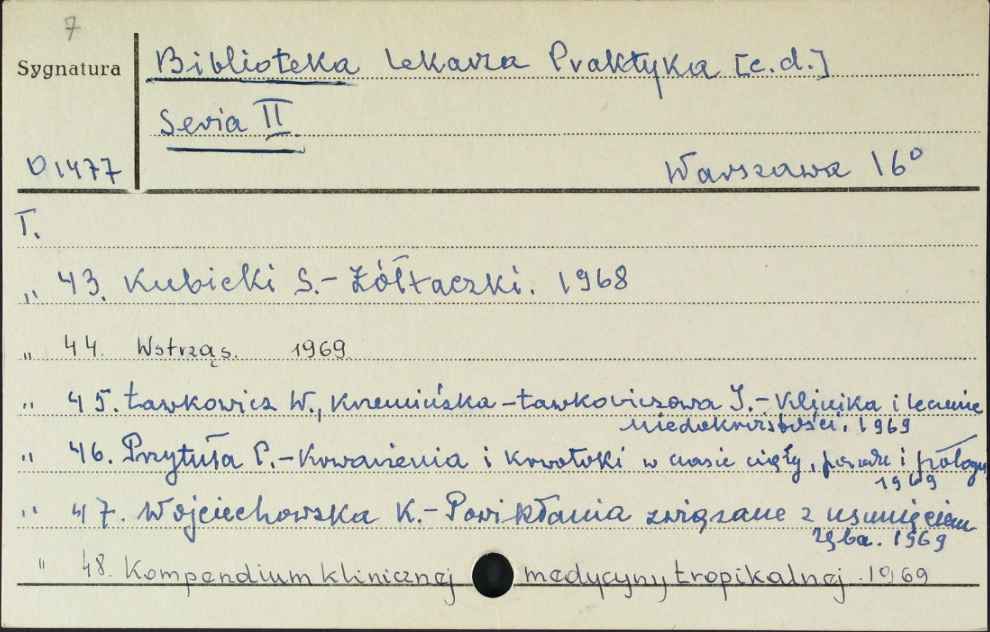 7
Sygnatura
Biblioteka Lekarza Praktyka [c.d.]
Seria II.
O 1477
Warszawa 16°
T.
„ 43. Kubicki S.- Żółtaczki. 1968
„ 44. Wstrząs. 1969
„ 45. Ławkowicz W., Krzemińska-Ławkowiczowa I.- Klinika i leczenie
niedokrwistości. 1969
„ 46. Przytuła P.- Krwawienia i krwotoki w czasie ciąży, porodu i połogu
1969
„ 47. Wojciechowska K.- Powikłania związane z usunięciem
zęba. 1969
„ 48. Kompendium klinicznej medycyny tropikalnej. 1969